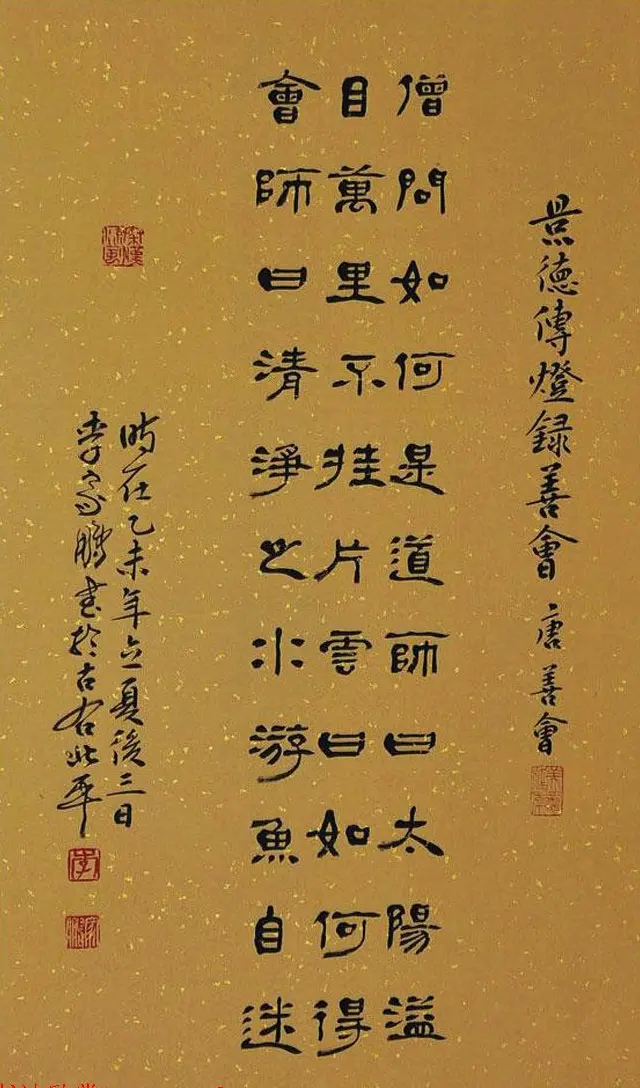 景德傳燈録善會 唐 善會
僧問如何是道師曰太陽溢
目萬里不挂片雲曰如何得
會師曰清淨之水游魚自迷
時在乙未年立夏後三日
李家鵬書於古右北平